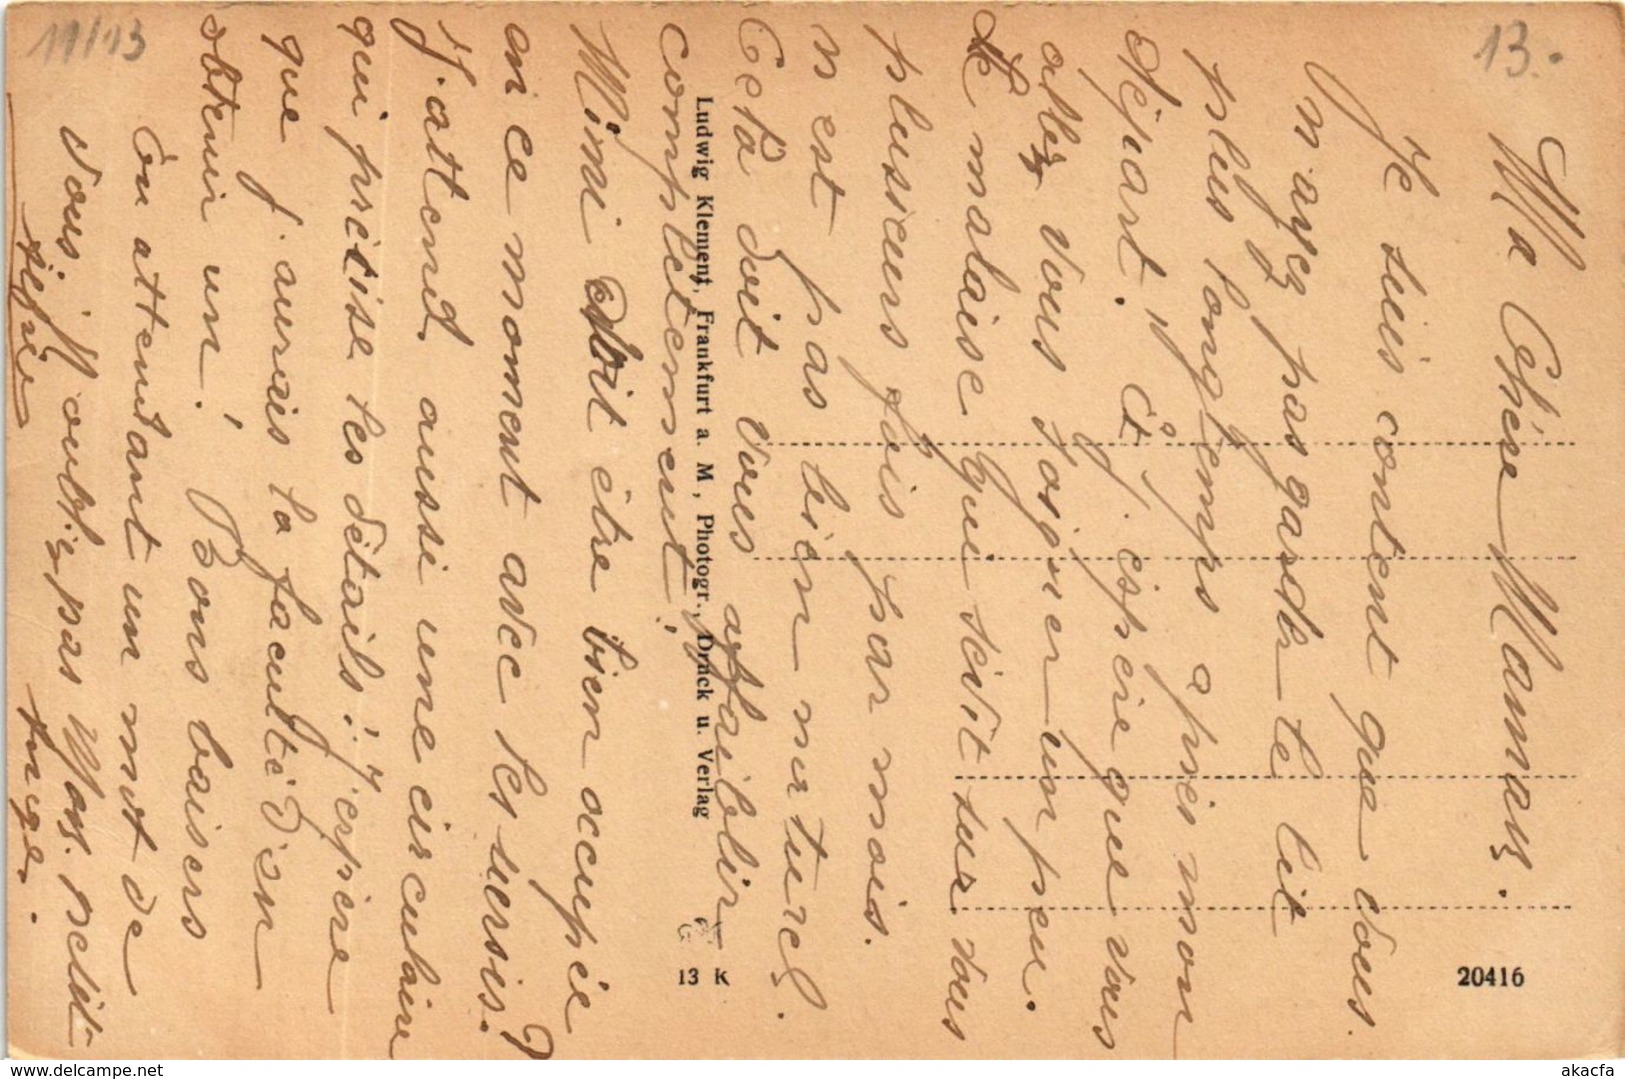 Ma Chère Maman.
Je suis content que vous
n'ayez pas gardé le lit
plus longtemps après mon
départ. Et j'espère que vous
allez vous soigner un peu.
Le malaise qui sévit sur vous
plusieurs fois par mois.
n'est pas bien naturel.
Cela doit vous affaiblir
complètement!
Mimi doit être bien occupée
en ce moment avec les
J'attend aussi une circulaire
qui précise les détails: J'espère
que j'aurais la faculté d'en
obtenir un! Bons baisers
En attendant un mot de
vous. N'oubliez pas Mon. petit
Ange.
Ludwig Klement, Frankfurt a. M, Photogr., Druck u. Verlag
13 K
20416
11/13
13.-
www.delcampe.net
akacfa